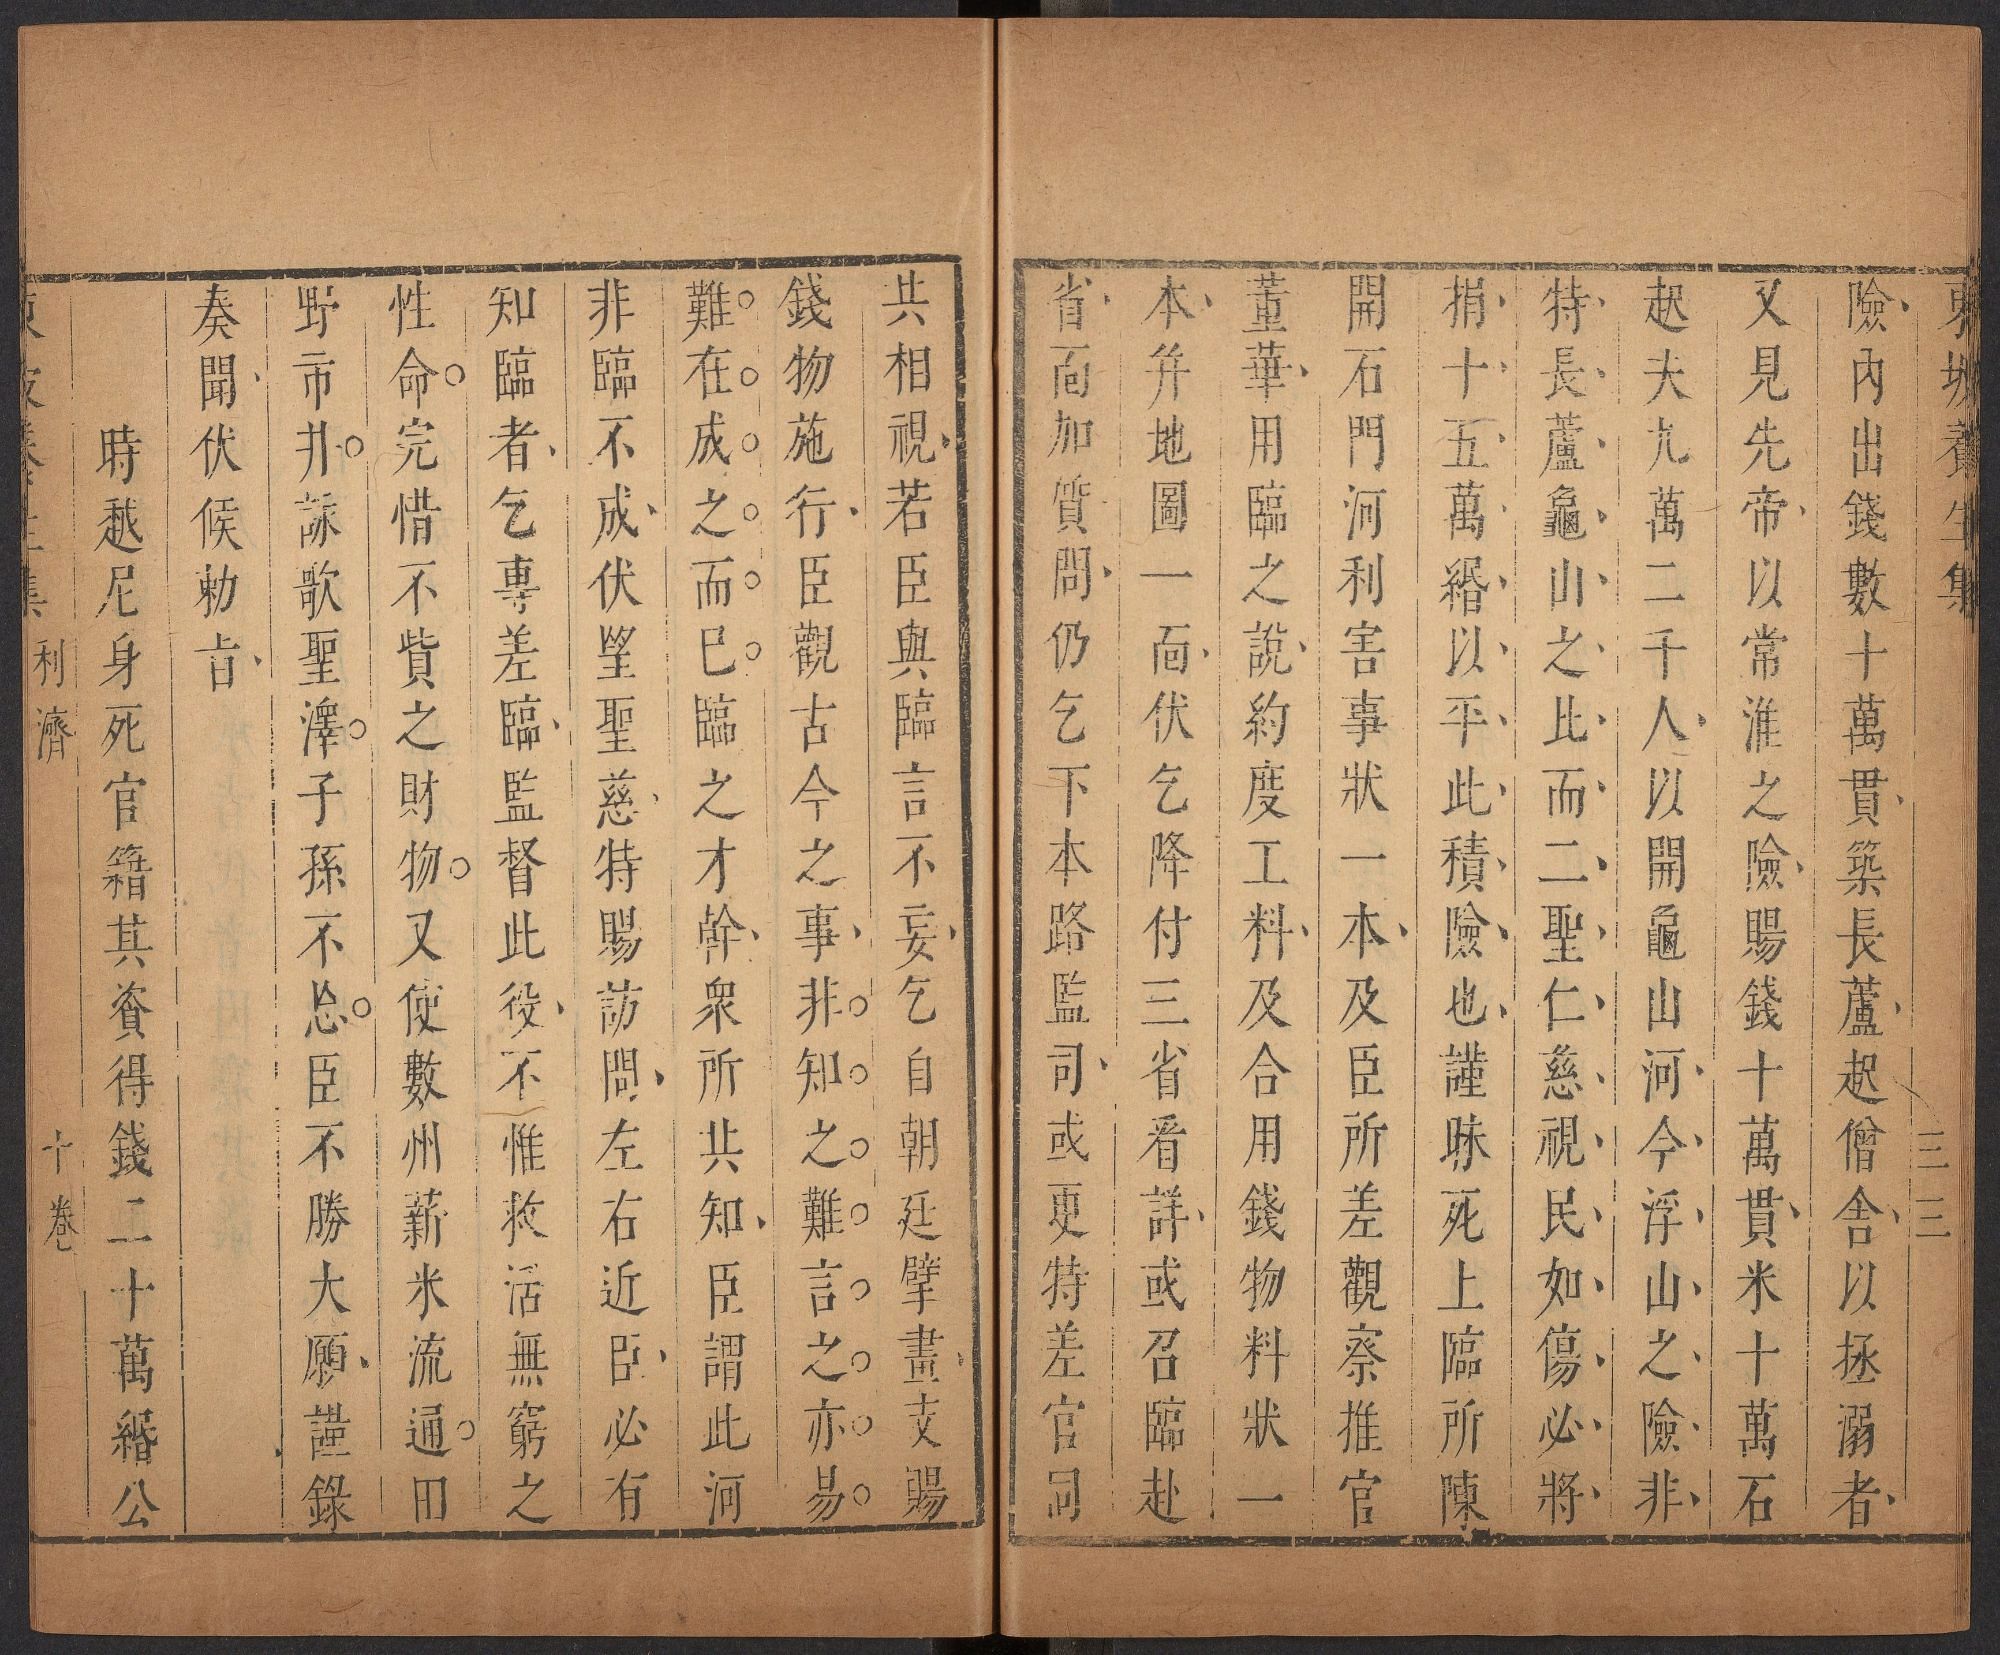 東坡養生集
三三
險內出錢數十萬貫築長蘆起僧舍以拯溺者
又見先帝以常淮之險賜錢十萬貫米十萬石
起夫九萬二千人以開龜山河今浮山之險非
特長蘆龜山之比而二聖仁慈視民如傷必將
捐十五萬緡以平此積險也謹昧死上臨所陳
開石門河利害事狀一本及臣所差觀察推官
董華用臨之說約度工料及合用錢物料狀一
本幷地圖一面伏乞降付三省看詳或召臨赴
省面加質問仍乞下本路監司或更特差官同
共相視若臣與臨言不妄乞自朝廷擘畫支賜
錢物施行臣觀古今之事非知之難言之亦易
難在成之而已臨之才幹衆所共知臣謂此河
非臨不成伏望聖慈特賜訪問左右近臣必有
知臨者乞專差臨監督此役不惟救活無窮之
性命完惜不貲之財物又使數州薪米流通田
野市井詠歌聖澤子孫不忘臣不勝大願謹錄
奏聞伏候勅旨
時越尼身死官籍其資得錢二十萬緡公
東坡養生集
利濟
十卷